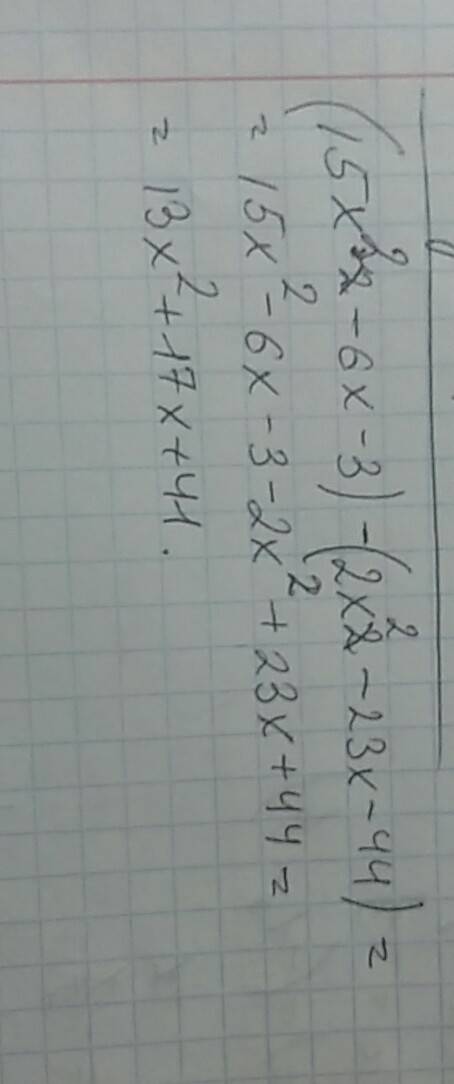 (15x² - 6x - 3) - (2x² - 23x - 44) =
= 15x² - 6x - 3 - 2x² + 23x + 44 =
= 13x² + 17x + 41.